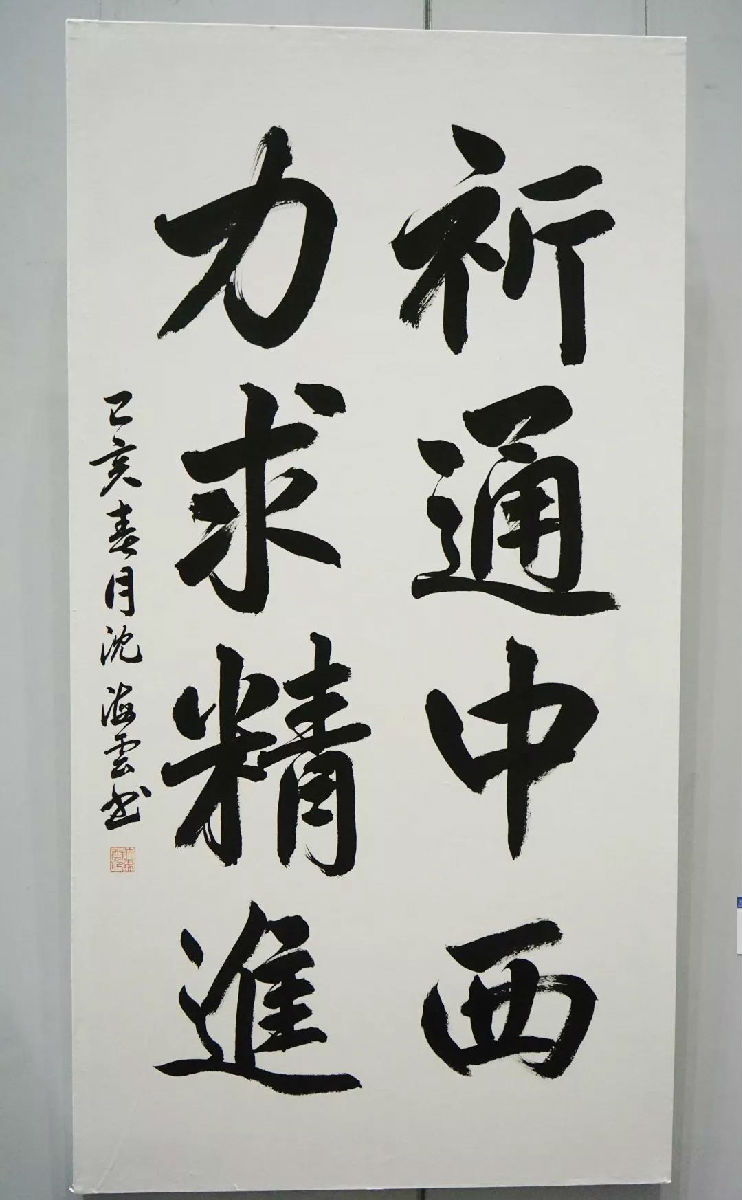 祈通中西
力求精進
己亥春月沈海雲书